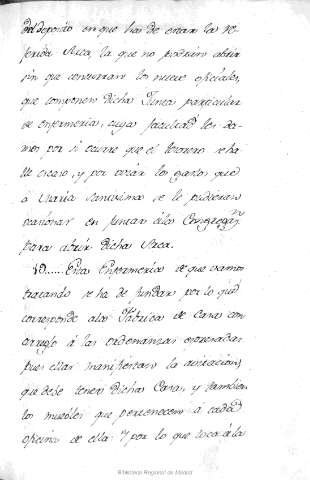 del deposito en que ha de estar la re-
ferida Arca, la que no podran abrir
sin que concurran los nueve oficiales,
que componen dicha Junta particular
de enfermeria, cuya facultad les da-
mos por si ocurre que el tesorero se ha-
lle escaso, y por evitar los gastos que
á Maria Santisima se le pudieran
ocasionar en juntar á los Congregan.
para abrir dicha Arca.
19..... Esta Enfermeria de que vamos
tratando se ha de fundar por lo que
corresponde a la Fabrica de Casa con
arreglo á las ordenanzas
pues ellas manifiestan la
que debe tener dicha Casa, y tambien
los muebles que pertenecen á cada
oficina de ella: Y por lo que toca á la
Biblioteca Regional de Madrid